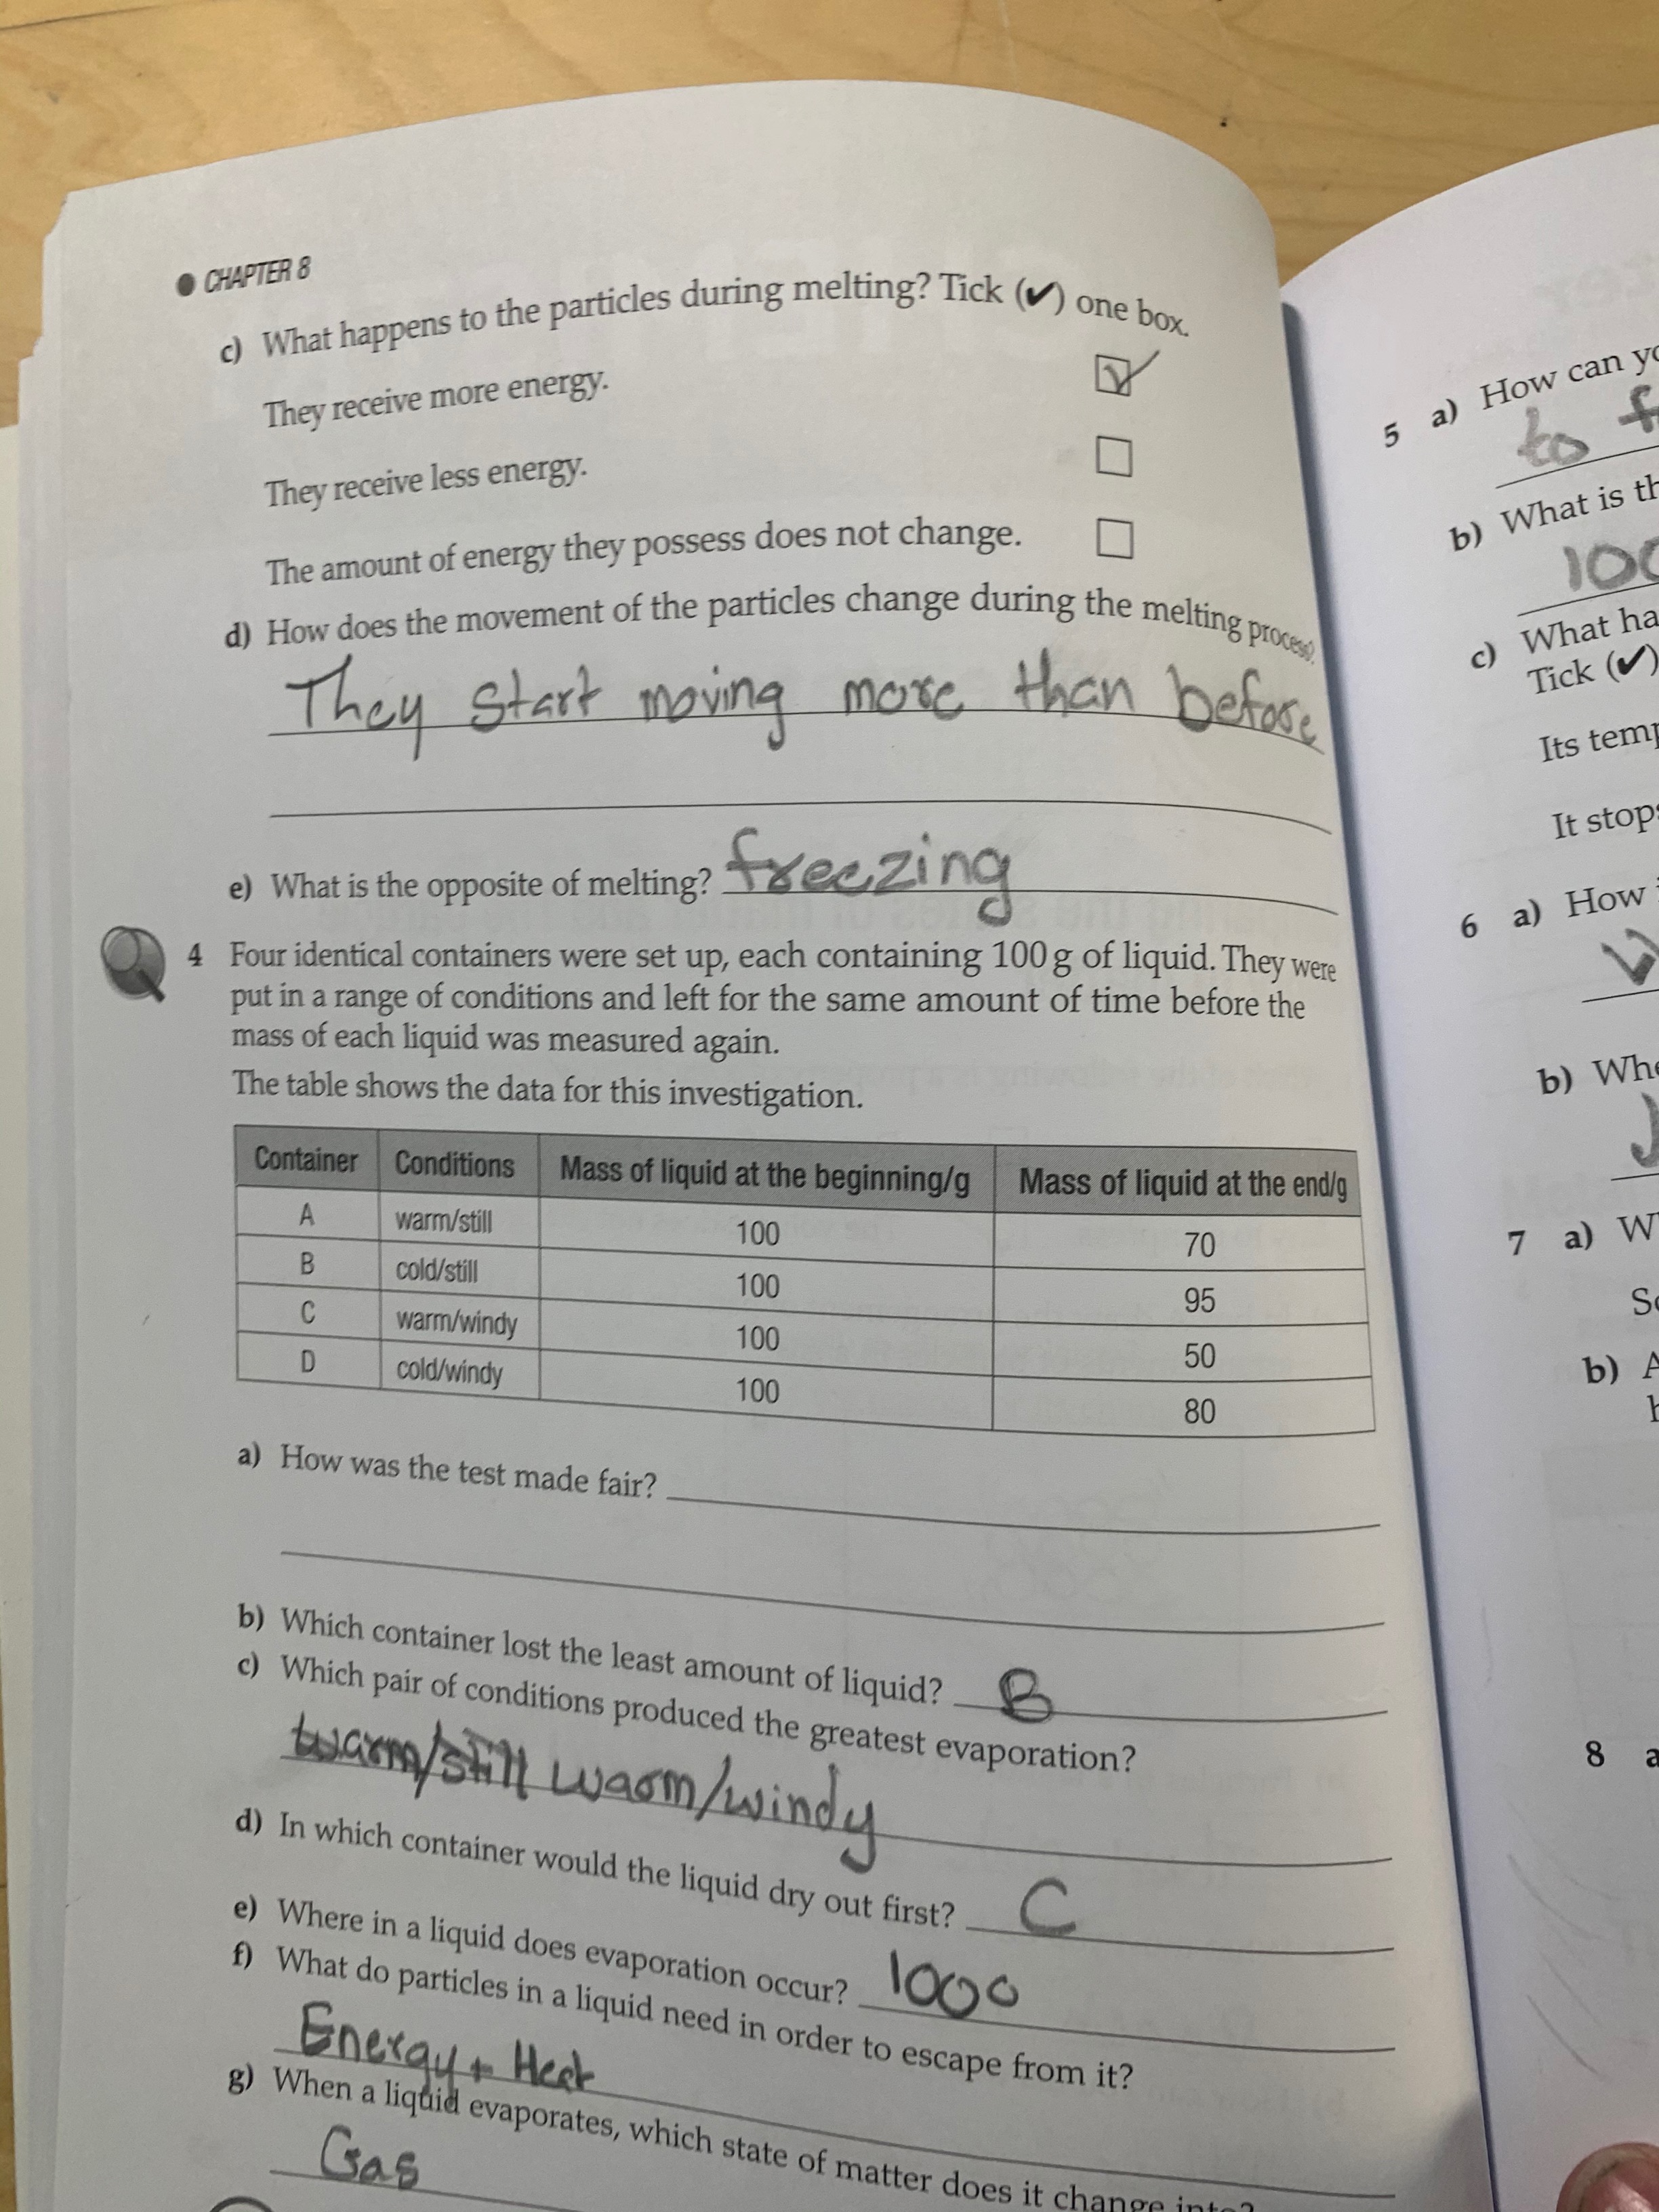 CHAPTER 8
c) What happens to the particles during melting? Tick (✔) one box.
They receive more energy.
They receive less energy.
The amount of energy they possess does not change.
d) How does the movement of the particles change during the melting process?
They start moving more than before
e) What is the opposite of melting? freezing
4 Four identical containers were set up, each containing 100 g of liquid. They were
put in a range of conditions and left for the same amount of time before the
mass of each liquid was measured again.
The table shows the data for this investigation.
Container Conditions Mass of liquid at the beginning/g Mass of liquid at the end/g
A warm/still 100 70
B cold/still 100 95
C warm/windy 100 50
D cold/windy 100 80
a) How was the test made fair?
b) Which container lost the least amount of liquid? B
c) Which pair of conditions produced the greatest evaporation?
warm/still warm/windy
d) In which container would the liquid dry out first? C
e) Where in a liquid does evaporation occur? 1000
f) What do particles in a liquid need in order to escape from it?
Energy + Heat
g) When a liquid evaporates, which state of matter does it change into?
Gas
5 a) How can
to
b) What is
100
c) What
Tick (✔)
Its
It
6 a) How
b)
7 a)
b)
8